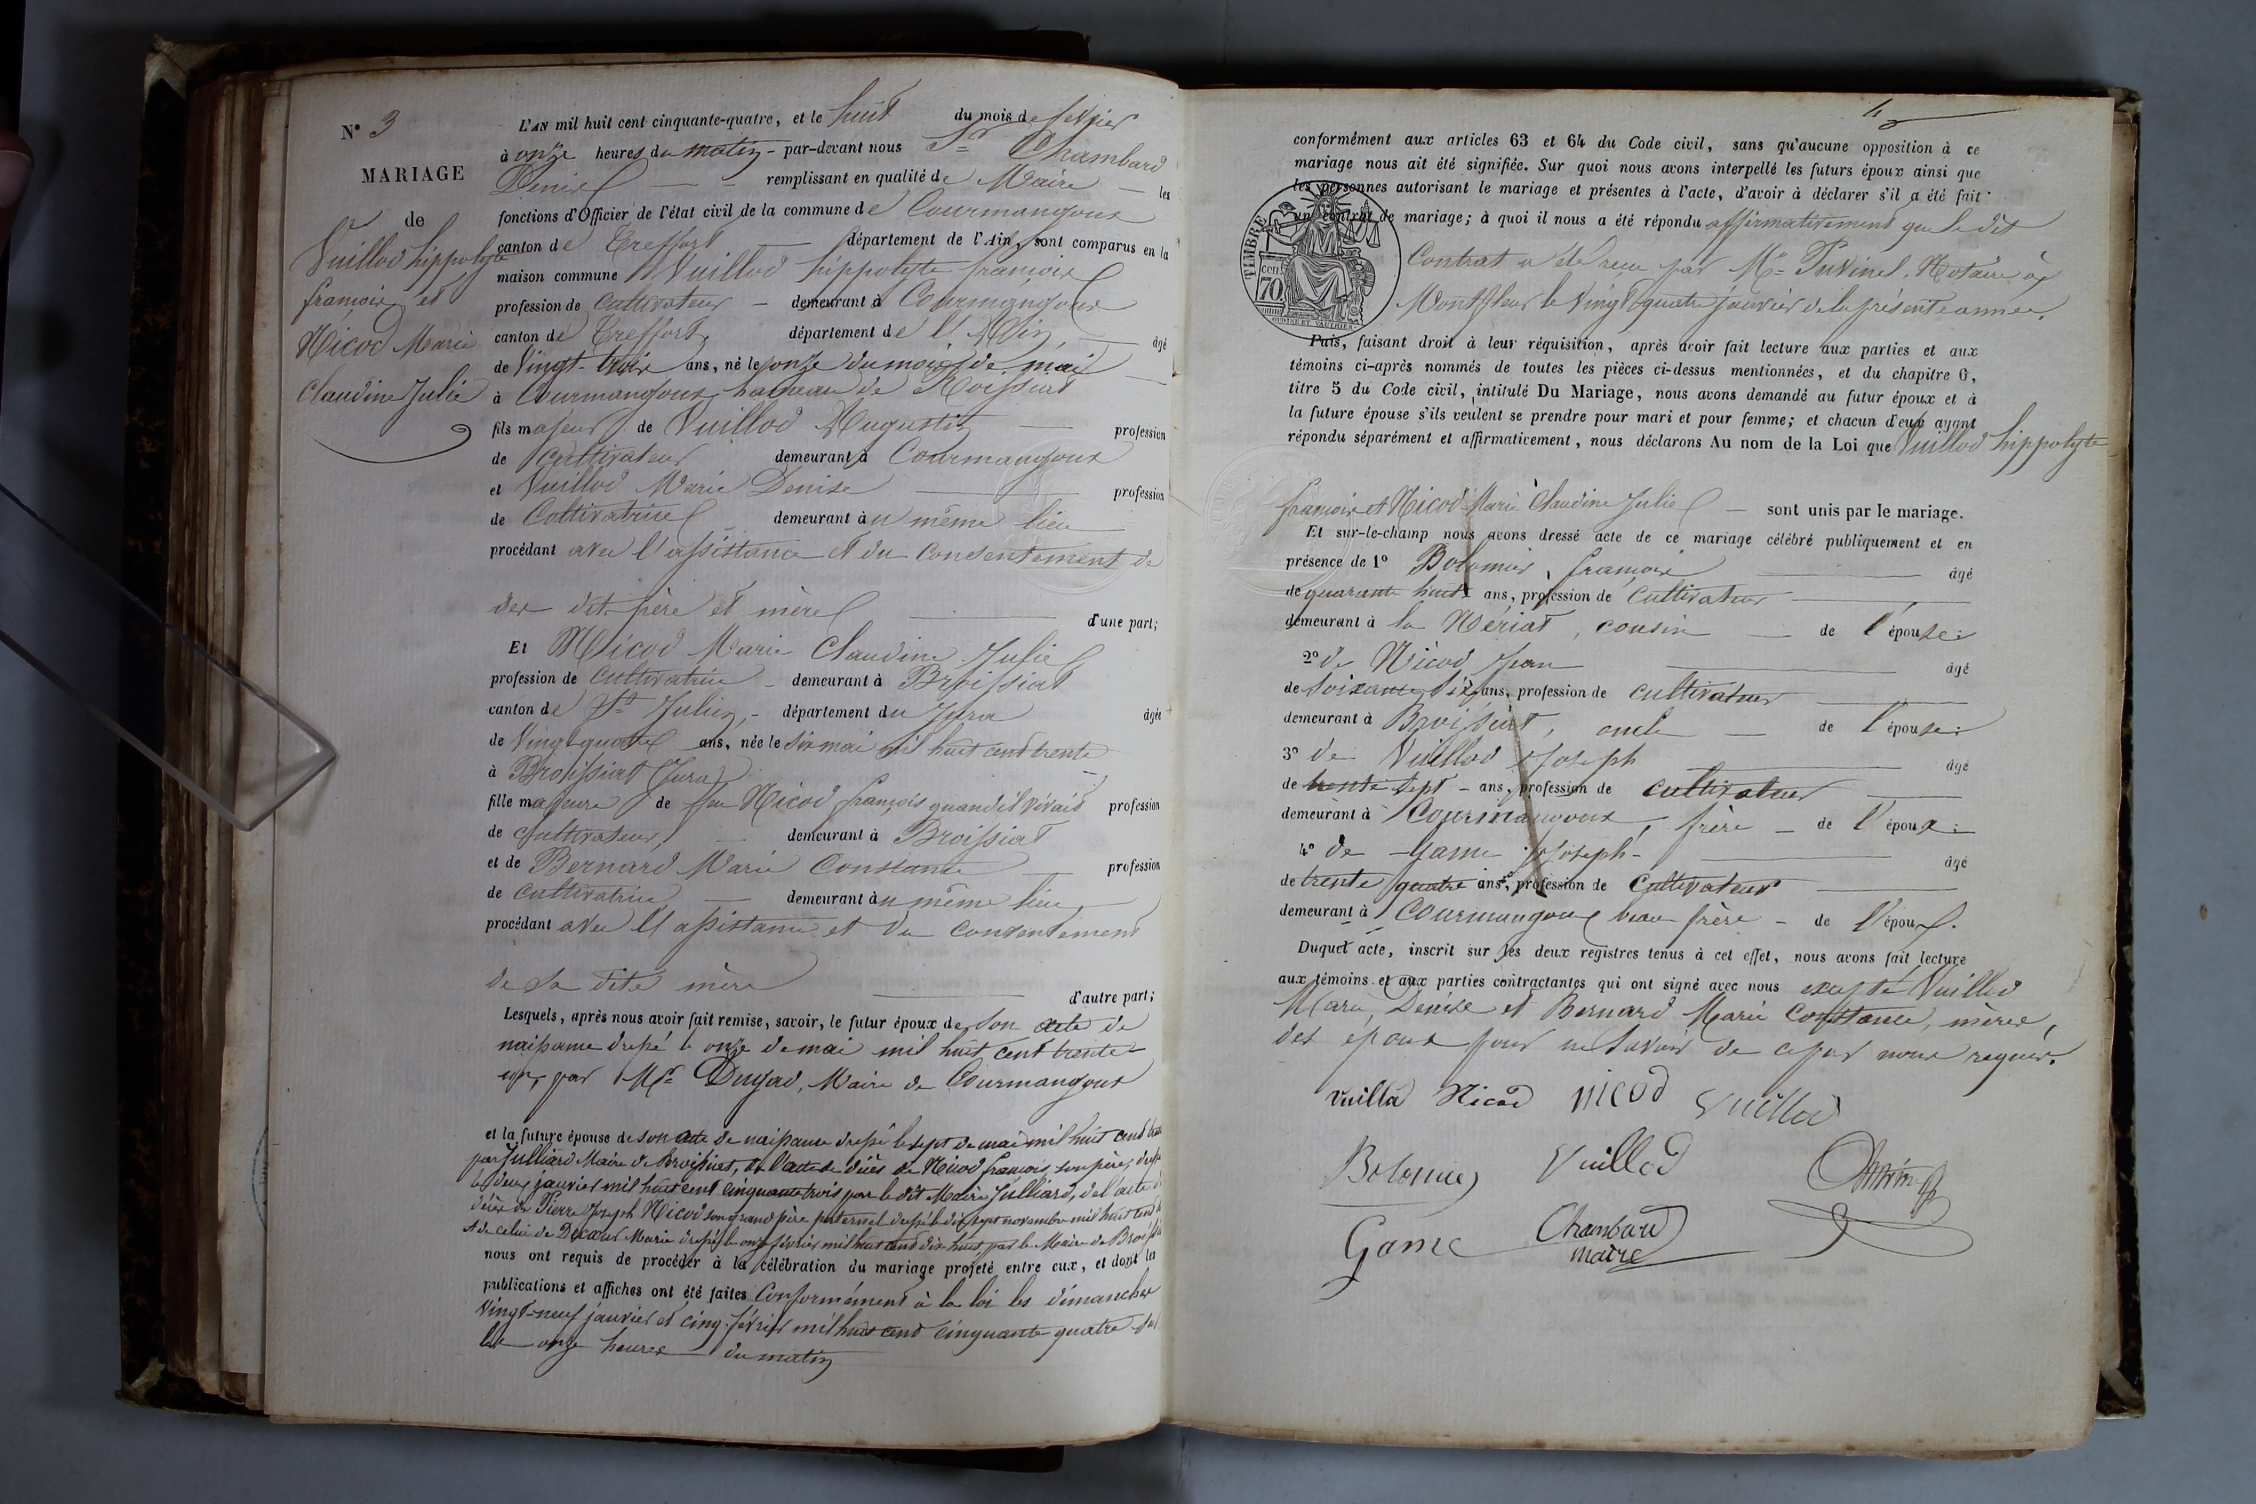 N° 3
MARIAGE
de
Vuillod hippolyte
françois et
Nicod Marie
Claudine Julie
L'AN mil huit cent cinquante-quatre, et le huit du mois de fevrier
à onze heures du matin - par-devant nous Sr Chambard
Denis remplissant en qualité de Maire les
fonctions d'Officier de l'état civil de la commune de Courmangoux
canton de Treffort département de l'Ain, sont comparus en la
maison commune Vuillod hippolyte françois
profession de Cultivateur demeurant à Courmangoux
canton de Treffort département de l'Ain, âgé
de Vingt-trois ans, né le onze du mois de mai
à Courmangoux hameau de Roissiat
fils majeur de Vuillod Augustin profession
de Cultivateur demeurant à Courmangoux
et Vuillod Marie Denise profession
de Cultivatrice demeurant au même lieu
procédant avec l'assistance et du consentement de
ses dit père et mère d'une part;
Et Nicod Marie Claudine Julie
profession de Cultivatrice demeurant à Broissiat
canton de St Julien, département du Jura âgée
de Vingt quatre ans, née le six mai mil huit cent trente
à Broissiat (Jura)
fille majeure de feu Nicod françois quand il vivait profession
de cultivateur, demeurant à Broissiat
et de Bernard Marie Constance profession
de cultivatrice demeurant au même lieu
procédant avec l'assistance et du consentement
de sa dite mère d'autre part;
Lesquels, après nous avoir fait remise, savoir, le futur époux de son acte de
naissance dressé le onze de mai mil huit cent trente
un, par Mr Maire de Courmangoux
et la future épouse de son acte de naissance dressé le sept de mai mil huit cent
par Julliard Maire de Broissiat, de l'acte de décès de Nicod françois, son père, dressé
le deux janvier mil huit cent cinquante trois par le dit Maire Julliard, de l'acte de
décès de Pierre Joseph Nicod son grand père paternel dressé le dix sept novembre mil huit cent
et de celui de Marie dressé le onze février mil huit cent dix huit, par le Maire de Broissiat
nous ont requis de procéder à la célébration du mariage projeté entre eux, et dont les
publications et affiches ont été faites Conformément à la loi les dimanches
Vingt-neuf janvier et cinq février mil huit cent cinquante-quatre
les onze heures du matin
4
conformément aux articles 63 et 64 du Code civil, sans qu'aucune opposition à ce
mariage nous ait été signifiée. Sur quoi nous avons interpellé les futurs époux ainsi que
les personnes autorisant le mariage et présentes à l'acte, d'avoir à déclarer s'il a été fait
un contrat de mariage; à quoi il nous a été répondu affirmativement que le dit
Contrat a été reçu par Me Puvinel, Notaire à
Montfleur le Vingt quatre janvier de la présente année.
TIMBRE
cen.
70
Puis, faisant droit à leur réquisition, après avoir fait lecture aux parties et aux
témoins ci-après nommés de toutes les pièces ci-dessus mentionnées, et du chapitre 6,
titre 5 du Code civil, intitulé Du Mariage, nous avons demandé au futur époux et à
la future épouse s'ils veulent se prendre pour mari et pour femme; et chacun d'eux ayant
répondu séparément et affirmativement, nous déclarons Au nom de la Loi que Vuillod hippolyte
françois et Nicod Marie Claudine Julie sont unis par le mariage.
Et sur-le-champ nous avons dressé acte de ce mariage célébré publiquement et en
présence de 1° Bolomier, françois âgé
de quarante huit ans, profession de Cultivateur
demeurant à la Nériat, cousin de l'épouse:
2° de Nicod Jean âgé
de Soixante dix ans, profession de cultivateur
demeurant à Broissiat, oncle de l'épouse:
3° de Vuillod Joseph âgé
de trente sept - ans, profession de cultivateur
demeurant à Courmangoux, frère - de l'époux:
4° de Game Joseph - âgé
de trente quatre ans, profession de Cultivateur
demeurant à Courmangoux beau frère - de l'époux.
Duquel acte, inscrit sur les deux registres tenus à cet effet, nous avons fait lecture
aux témoins et aux parties contractantes qui ont signé avec nous excepté Vuillod
Marie Denise et Bernard Marie Constance, mères,
des époux pour ne savoir de ce par nous requis.
Vuillod Nicod nicod Vuillod
Bolomier Vuillod
Game Chambard
maire